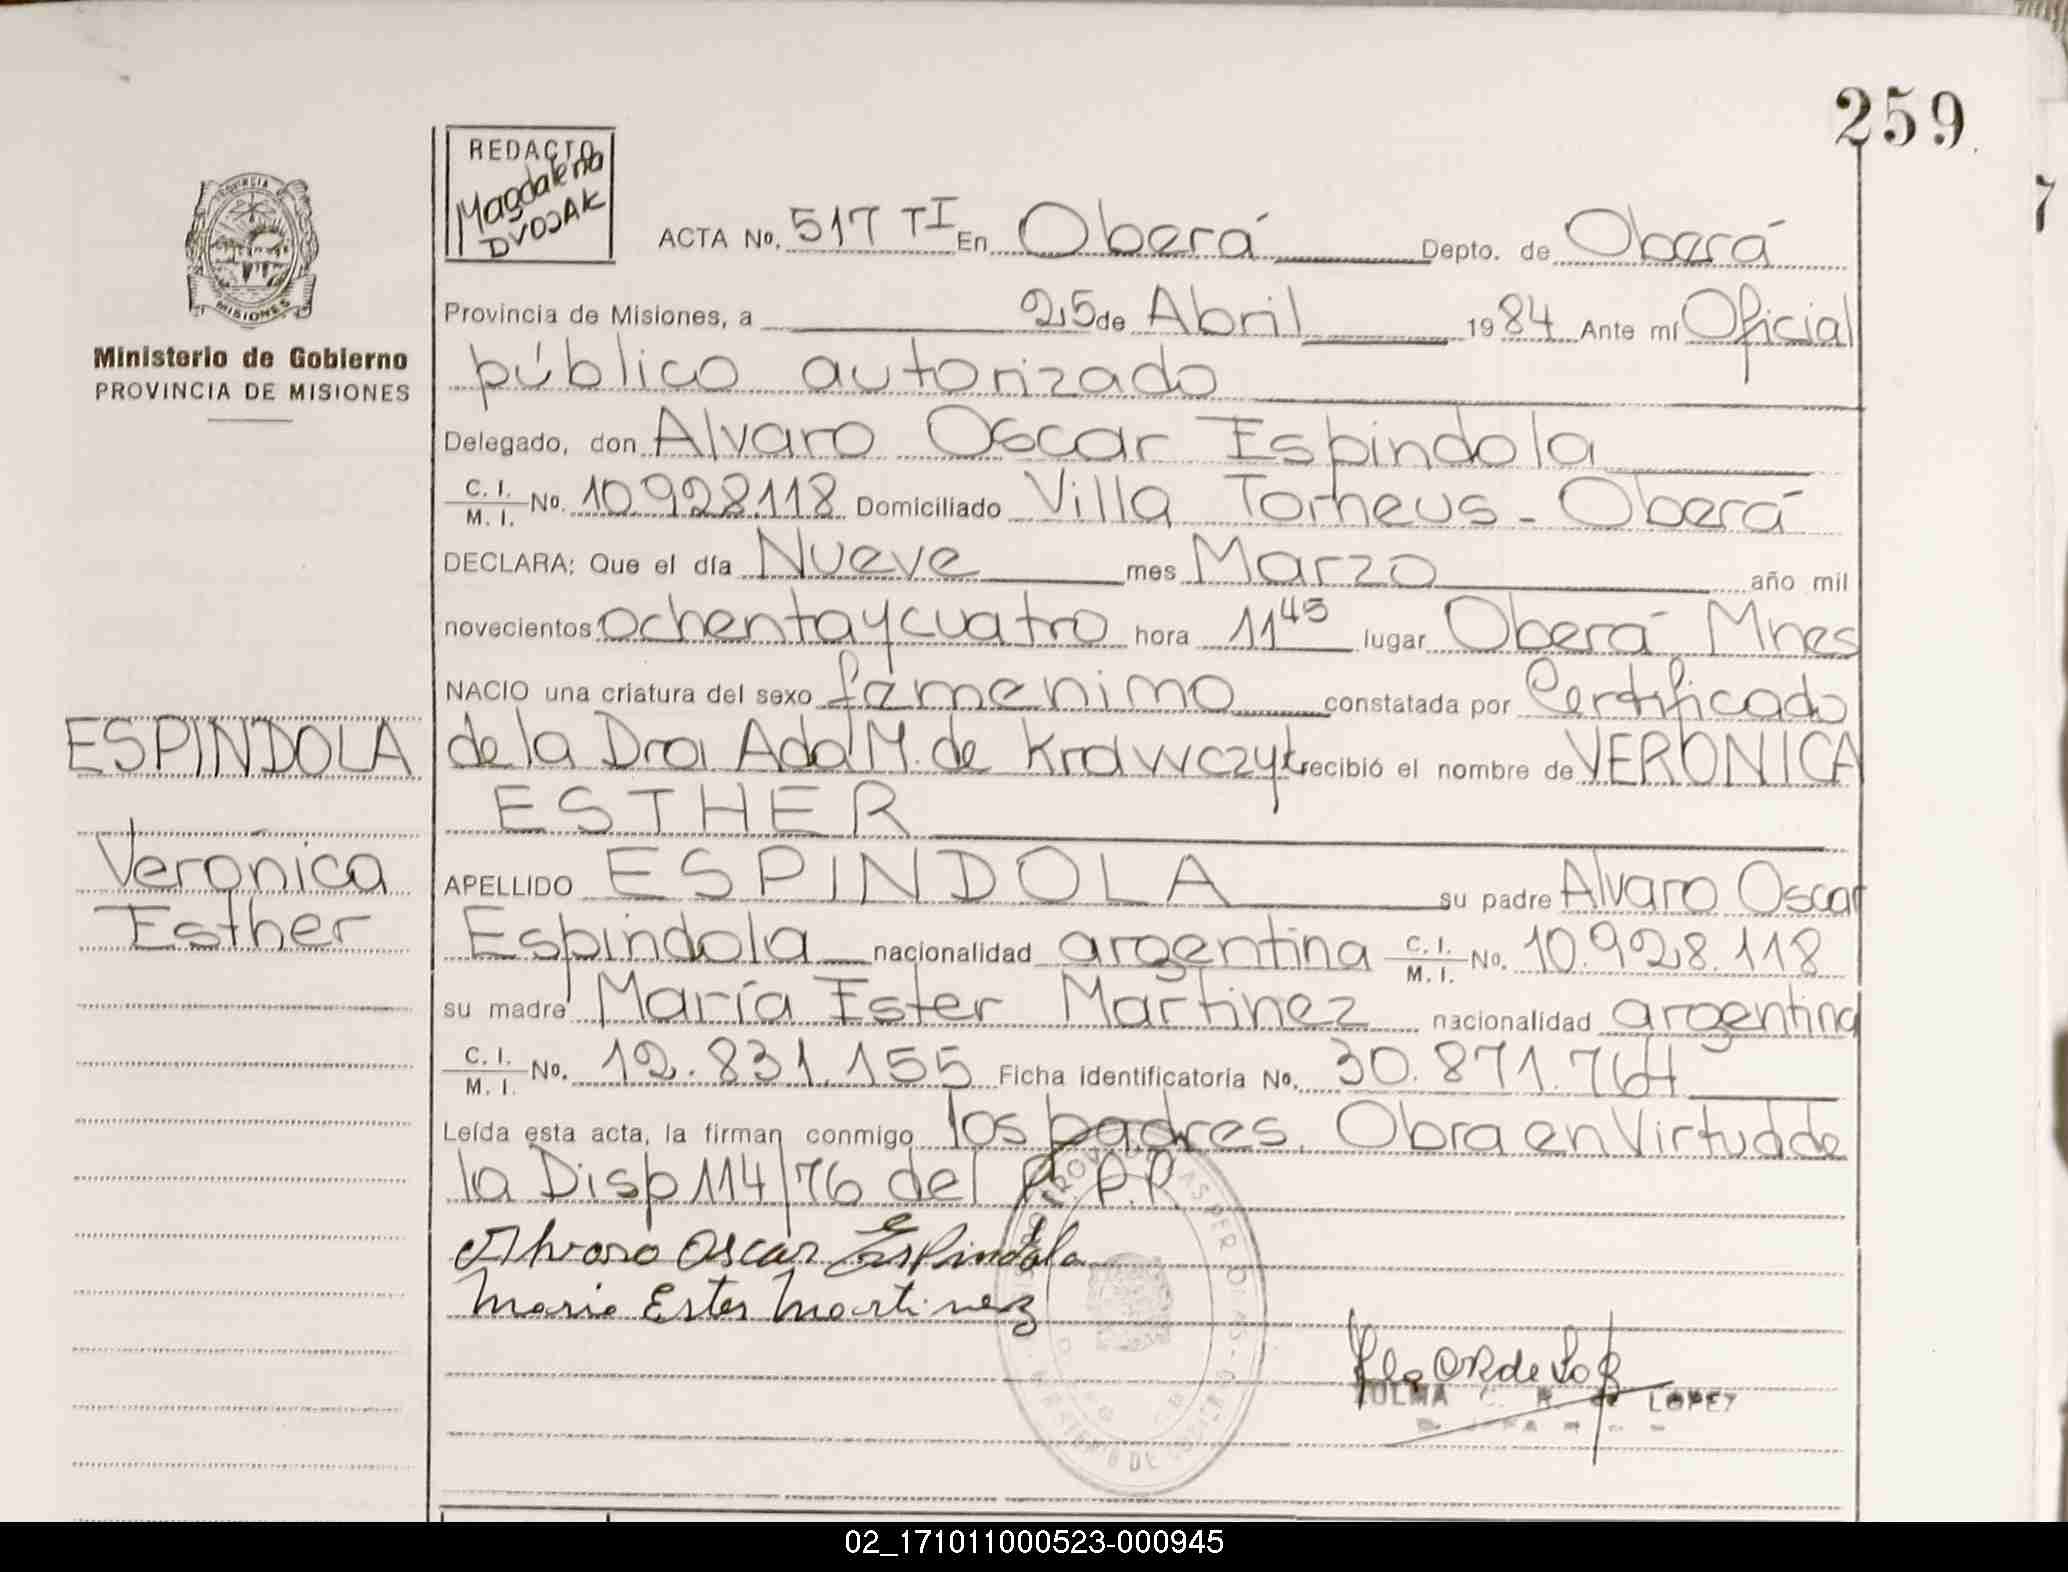 259
7
REDACTO
Magdalena
DVOJAK
PROVINCIA
MISIONES
Ministerio de Gobierno
PROVINCIA DE MISIONES
ACTA No. 517 TI En Oberá Depto. de Oberá
Provincia de Misiones, a 25 de Abril 1984 Ante mí Oficial
público autorizado
Delegado, don Alvaro Oscar Espindola
C. I. / M. I. No. 10.928.118 Domiciliado Villa Torneus - Oberá
DECLARA: Que el día Nueve mes Marzo año mil
novecientos ochentaycuatro hora 11 45 lugar Oberá Mnes
NACIO una criatura del sexo femenino constatada por Certificado
de la Dra. Ada M. de Krawczyk recibió el nombre de VERONICA
ESTHER
APELLIDO ESPINDOLA su padre Alvaro Oscar
Espindola nacionalidad argentina C. I. / M. I. No. 10.928.118
su madre María Ester Martinez nacionalidad argentina
C. I. / M. I. No. 12.831.155 Ficha identificatoria No. 30.871.764
Leída esta acta, la firman conmigo los padres. Obra en Virtud de
la Disp 114/76 del P.P.P
Alvaro Oscar Espindola
Maria Ester Martinez
ZULMA C. R. de LOPEZ
ESPINDOLA
Verónica
Esther
02_171011000523-000945